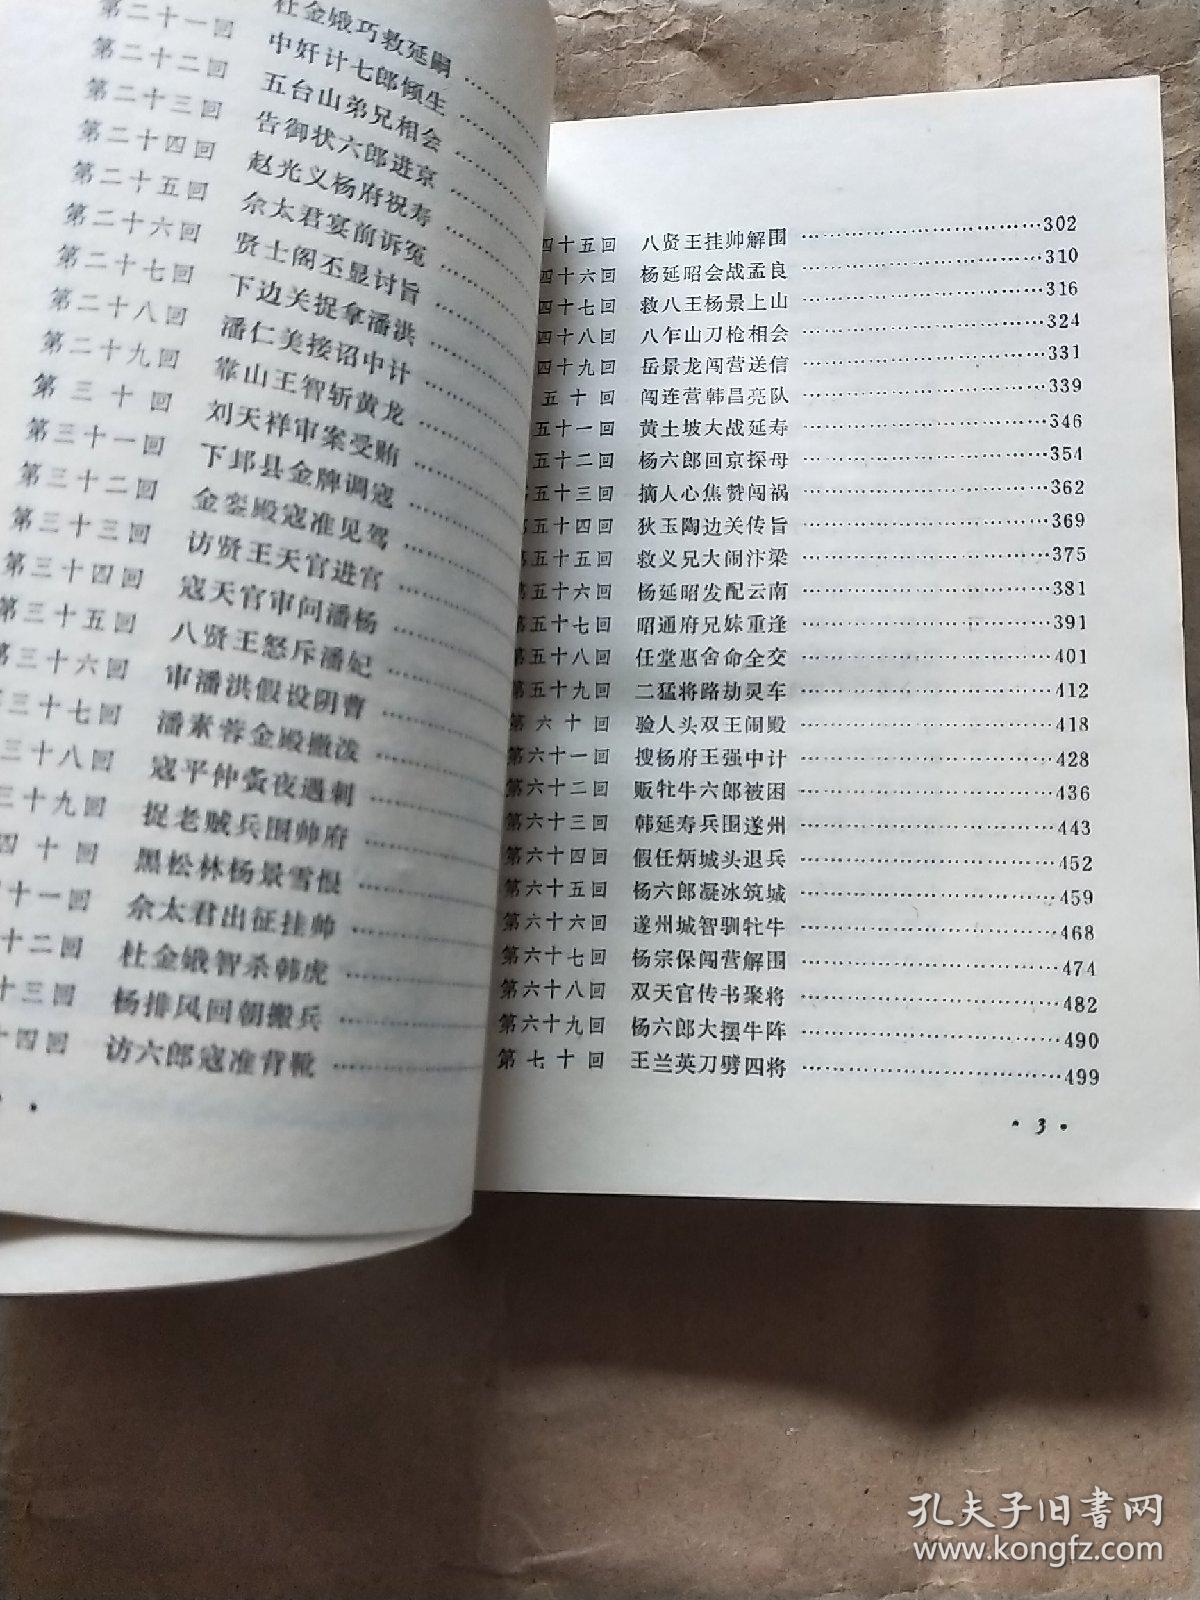 第二十一回 杜金娥巧救延嗣
第二十二回 中奸计七郎倾生
第二十三回 五台山弟兄相会
第二十四回 告御状六郎进京
第二十五回 赵光义杨府祝寿
第二十六回 佘太君宴前诉冤
第二十七回 贤士阁丕显讨旨
第二十八回 下边关捉拿潘洪
第二十九回 潘仁美接诏中计
第三十回 靠山王智斩黄龙
第三十一回 刘天祥审案受贿
第三十二回 下邽县金牌调寇
第三十三回 金銮殿寇准见驾
第三十四回 访贤王天官进宫
第三十五回 寇天官审问潘杨
第三十六回 八贤王怒斥潘妃
三十七回 审潘洪假设阴曹
三十八回 潘素蓉金殿撒泼
三十九回 寇平仲夤夜遇刺
四十回 捉老贼兵围帅府
十一回 黑松林杨景雪恨
十二回 佘太君出征挂帅
十三回 杜金娥智杀韩虎
十四回 杨排风回朝搬兵
访六郎寇准背靴
四十五回 八贤王挂帅解围 302
四十六回 杨延昭会战孟良 310
四十七回 救八王杨景上山 316
四十八回 八乍山刀枪相会 324
四十九回 岳景龙闯营送信 331
五十回 闯连营韩昌亮队 339
五十一回 黄土坡大战延寿 346
五十二回 杨六郎回京探母 354
五十三回 摘人心焦赞闯祸 362
第五十四回 狄玉陶边关传旨 369
第五十五回 救义兄大闹汴梁 375
第五十六回 杨延昭发配云南 381
第五十七回 昭通府兄妹重逢 391
第五十八回 任堂惠舍命全交 401
第五十九回 二猛将路劫灵车 412
第六十回 验人头双王闹殿 418
第六十一回 搜杨府王强中计 428
第六十二回 贩牤牛六郎被困 436
第六十三回 韩延寿兵围遂州 443
第六十四回 假任炳城头退兵 452
第六十五回 杨六郎凝冰筑城 459
第六十六回 遂州城智驯牤牛 468
第六十七回 杨宗保闯营解围 474
第六十八回 双天官传书聚将 482
第六十九回 杨六郎大摆牛阵 490
第七十回 王兰英刀劈四将 499
· 3 ·
孔夫子旧书网
www.kongfz.com